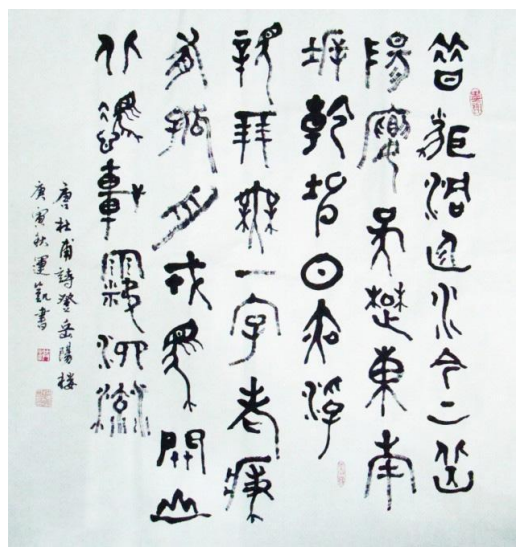 昔聞洞庭水今上岳
陽樓吳楚東南
坼乾坤日夜浮
親朋無一字老病
有孤舟戎馬關山
北憑軒涕泗流
唐杜甫詩登岳陽楼
庚寅秋運凱書